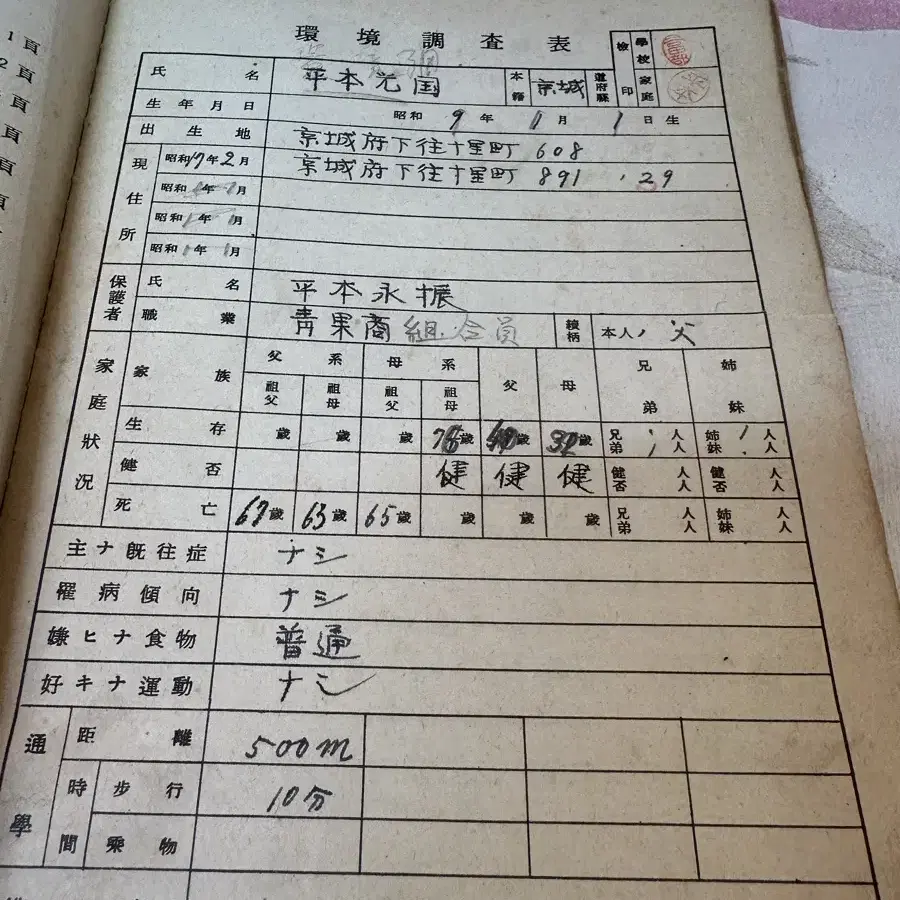 1頁
2頁
頁
頁
頁
環境調査表
檢印 學校 家庭
氏名 平本光国 本籍 京城 道府縣
生年月日 昭和9年11月1日生
出生地 京城府下往十里町 608
現住所 昭和17年2月 京城府下往十里町 891 29
昭和 年 月
昭和 年 月
昭和 年 月
保護者 氏名 平本永振
職業 青果商組合員 續柄 本人ノ 父
家庭狀況 家族 父系 母系 父 母 兄弟 姉妹
祖父 祖母 祖父 祖母
生存 歲 歲 歲 歲 歲 歲 兄弟 人人 姉妹 人人
健否 健 健 健 健否 人人 健否 人人
死亡 67歲 63歲 65歲 歲 歲 歲 兄弟 人人 姉妹 人人
主ナ既往症 ナシ
罹病傾向 ナシ
嫌ヒナ食物 普通
好キナ運動 ナシ
通學 距離 500m
時間 步行 10分
乘物